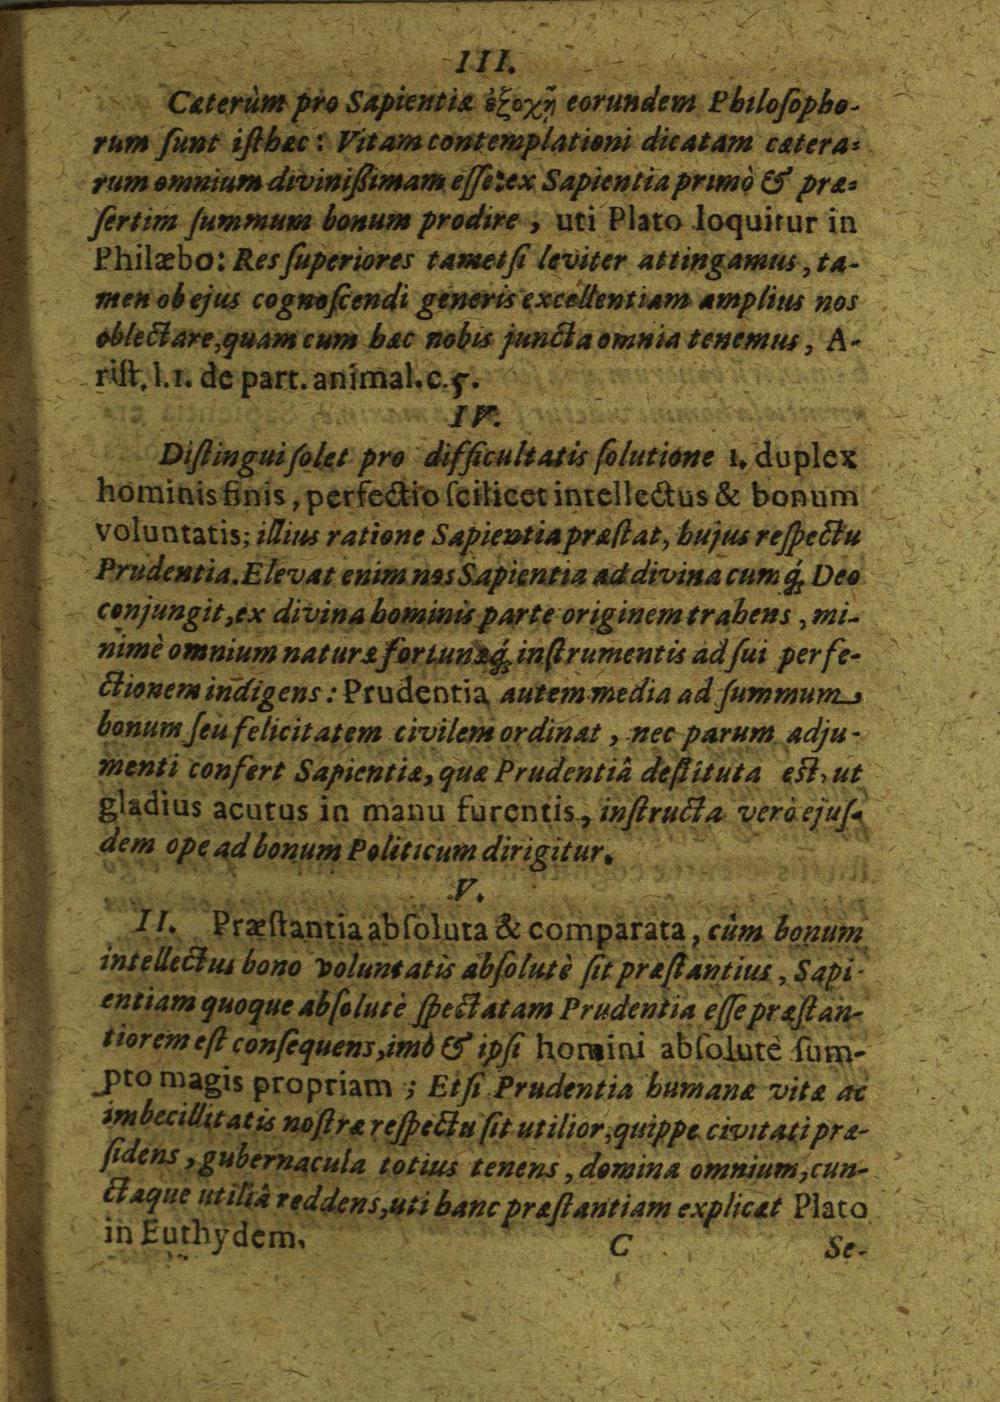 III.
Cæterùm pro Sapientiæ ἐξοχῇ eorundem Philoſopho-
rum ſunt iſthæc: Vitam contemplationi dicatam cætera-
rum omnium divinißimam eſſe: ex Sapientia primò & præ-
ſertim ſummum bonum prodire, uti Plato loquitur in
Philæbo: Res ſuperiores tametſi leviter attingamus, ta-
men ob ejus cognoſcendi generis excellentiam amplius nos
oblectare, quam cum hæc nobis juncta omnia tenemus, A-
riſt. l.1. de part. animal. c. 5.
IV.
Diſtingui ſolet pro difficultatis ſolutione 1. duplex
hominis finis, perfectio ſcilicet intellectus & bonum
voluntatis; illius ratione Sapientia præſtat, hujus reſpectu
Prudentia. Elevat enim nos Sapientia ad divina cumq́; Deo
conjungit, ex divina hominis parte originem trahens, mi-
nimè omnium naturæ fortunæq́; inſtrumentis ad ſui perfe-
ctionem indigens: Prudentia autem media ad ſummum
bonum ſeu felicitatem civilem ordinat, nec parum adju-
menti confert Sapientiæ, quæ Prudentiâ deſtituta eſt, ut
gladius acutus in manu furentis, inſtructa verò ejuſ-
dem ope ad bonum Politicum dirigitur.
V.
II. Præſtantia abſoluta & comparata, cùm bonum
intellectus bono voluntatis abſolutè ſit præſtantius, Sapi-
entiam quoque abſolutè ſpectatam Prudentia eſſe præſtan-
tiorem eſt conſequens, imò & ipſi homini abſolutè ſum-
pto magis propriam; Etſi Prudentia humanæ vitæ ac
imbecillitatis noſtræ reſpectu ſit utilior, quippe civitati præ-
ſidens, gubernacula totius tenens, domina omnium, cun-
ctaque utiliâ reddens, uti hanc præſtantiam explicat Plato
in Euthydem.
C Se-